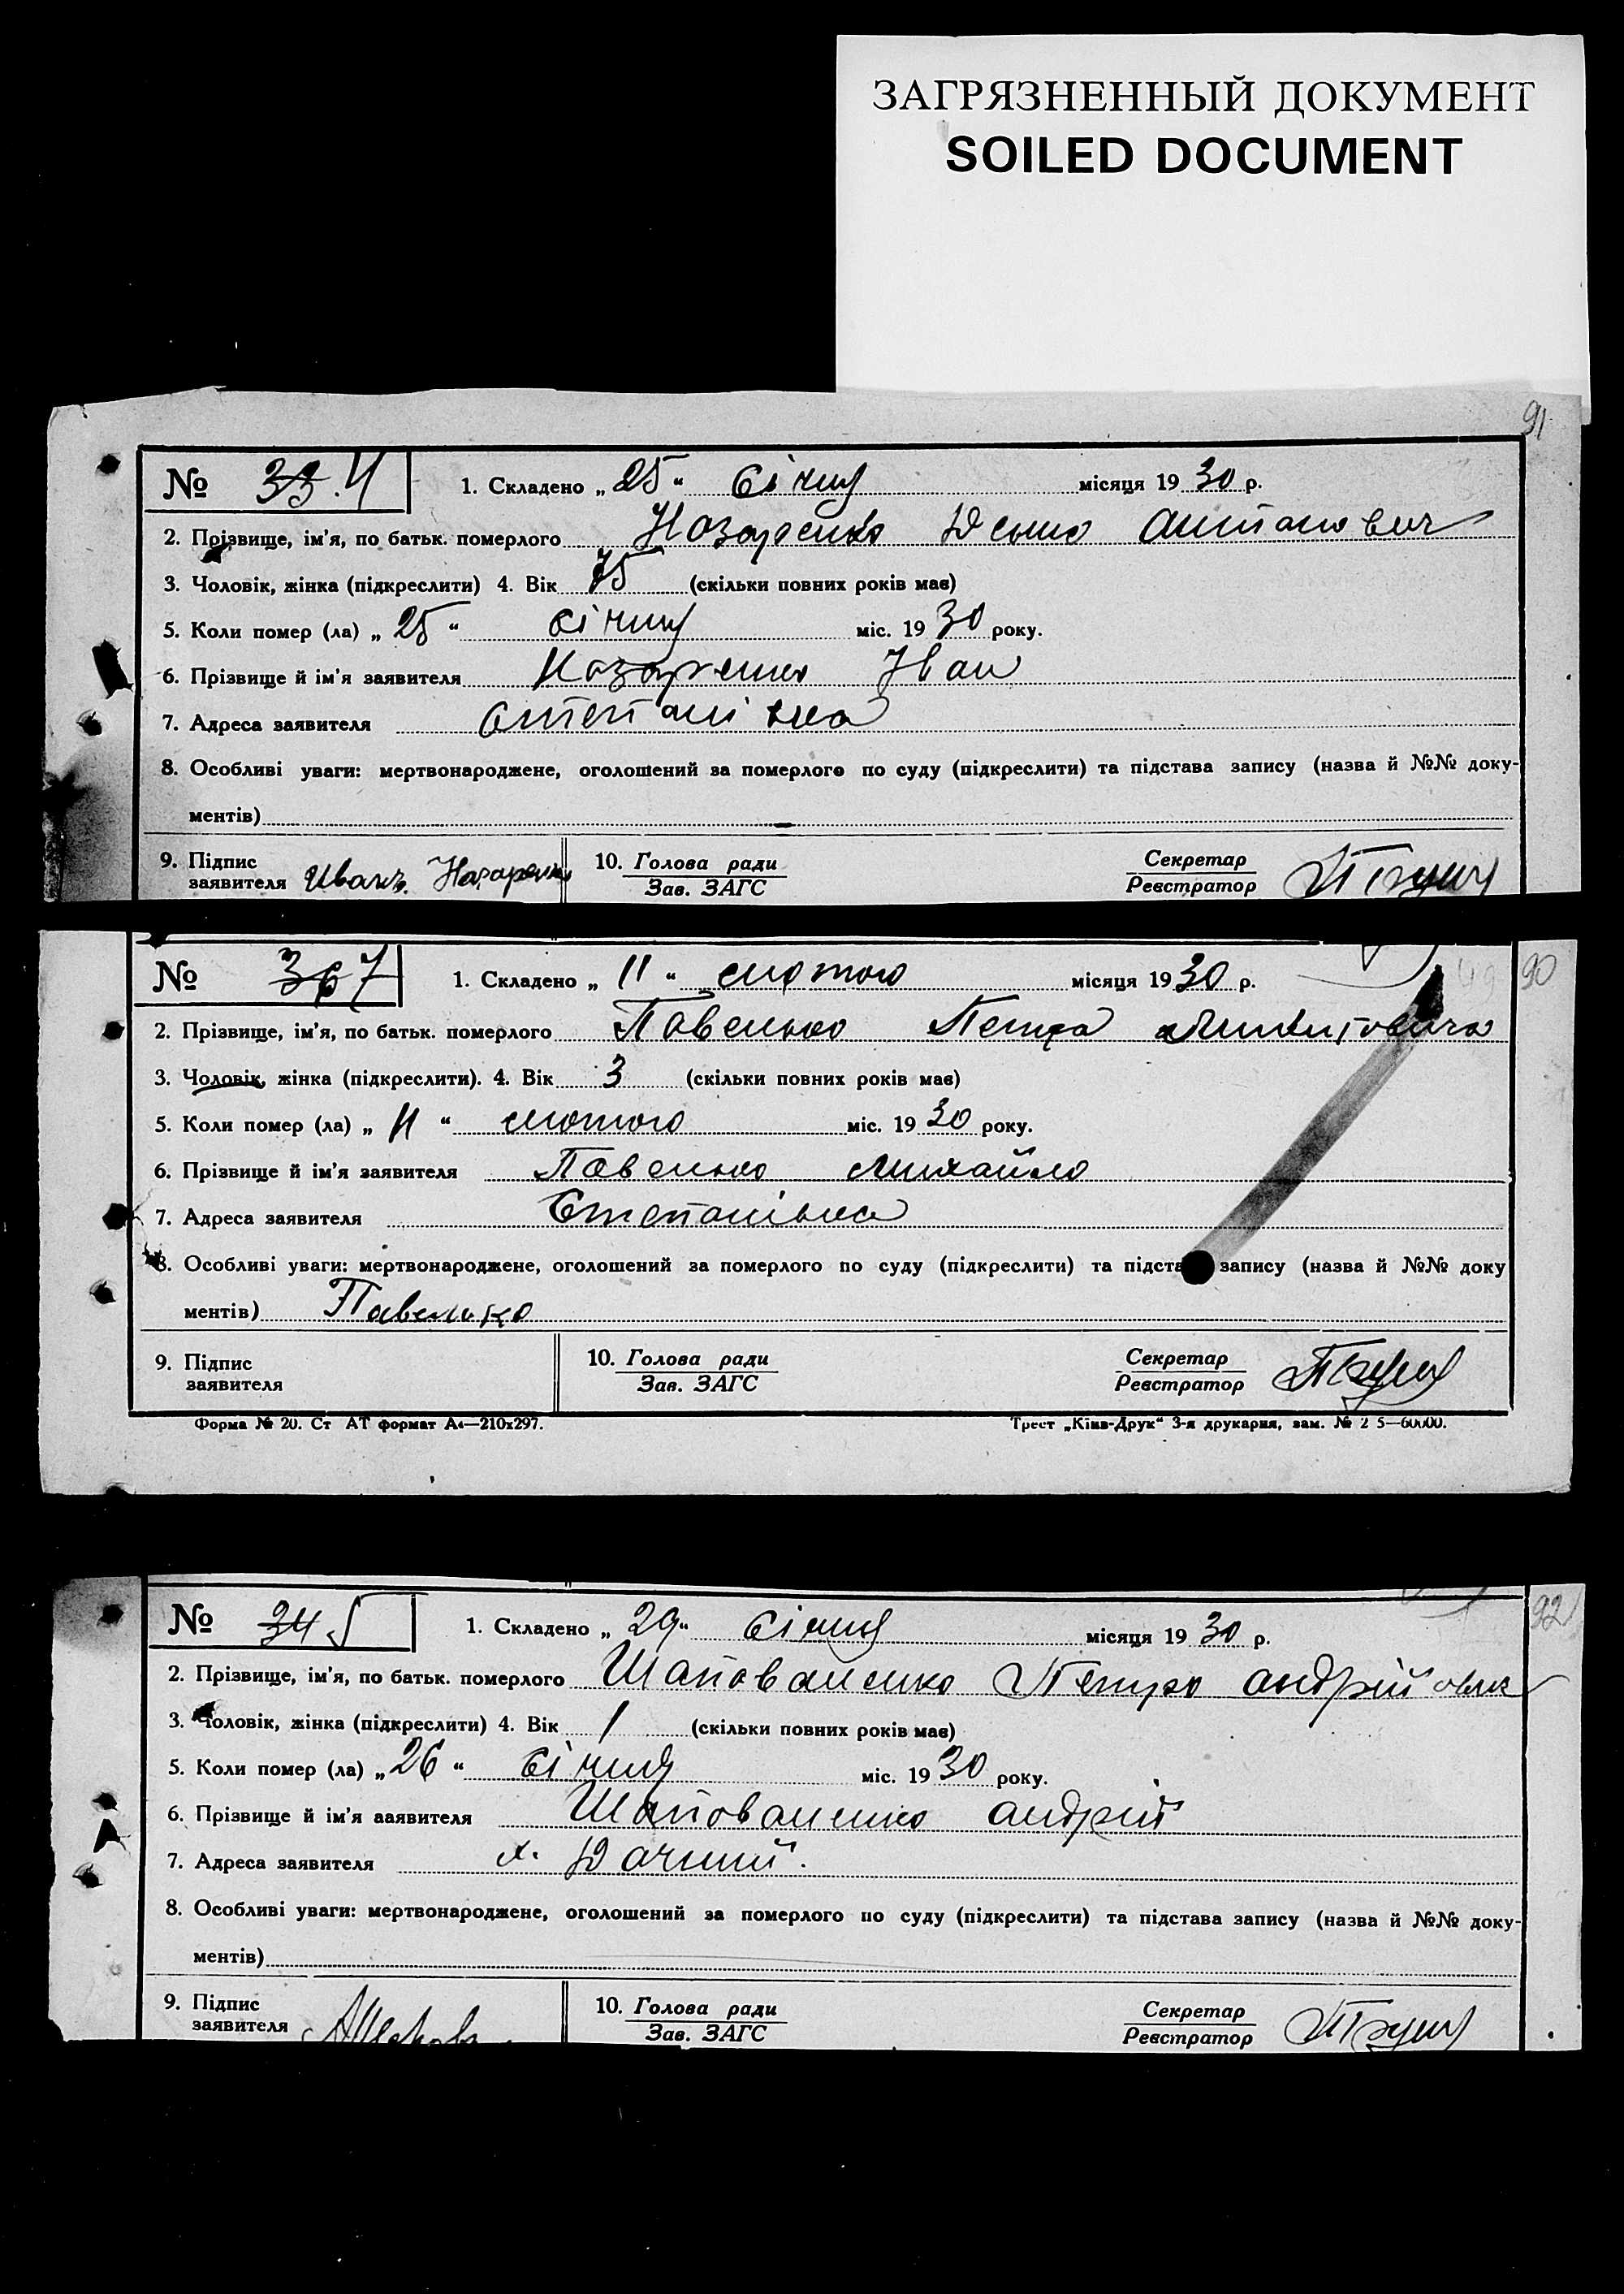 ЗАГРЯЗНЕННЫЙ ДОКУМЕНТ
SOILED DOCUMENT
91
№ 33. 4 1. Складено „ 25 “ січня місяця 19 30 р.
2. Прізвище, ім'я, по батьк. померлого Назаренко Демид Антонович
3. Чоловік, жінка (підкреслити) 4. Вік 75 (скільки повних років має)
5. Коли помер (ла) „ 25 “ січня міс. 19 30 року.
6. Прізвище й ім'я заявителя Назаренко Іван
7. Адреса заявителя Степанівка
8. Особливі уваги: мертвонароджене, оголошений за померлого по суду (підкреслити) та підстава запису (назва й №№ доку-
ментів)
9. Підпис заявителя Иванъ Назаренко 10. Голова ради Зав. ЗАГС Секретар Реєстратор
90
№ 36 7 1. Складено „ 11 “ лютого місяця 19 30 р.
2. Прізвище, ім'я, по батьк. померлого Павенько Петра
3. Чоловік, жінка (підкреслити). 4. Вік 3 (скільки повних років має)
5. Коли помер (ла) „ 11 “ лютого міс. 19 30 року.
6. Прізвище й ім'я заявителя Павенько Михайло
7. Адреса заявителя Степанівка
8. Особливі уваги: мертвонароджене, оголошений за померлого по суду (підкреслити) та підста запису (назва й №№ доку
ментів)
9. Підпис заявителя 10. Голова ради Зав. ЗАГС Секретар Реєстратор
Форма № 20. Ст АТ формат А4—210х297. Трест „Київ-Друк“ 3-я друкарня, зам. № 2 5—60000.
92
№ 34 5 1. Складено „ 29 “ січня місяця 19 30 р.
2. Прізвище, ім'я, по батьк. померлого Шаповаленко Петро Андрійович
3. Чоловік, жінка (підкреслити) 4. Вік 1 (скільки повних років має)
5. Коли помер (ла) „ 26 “ січня міс. 19 30 року.
6. Прізвище й ім'я заявителя Шаповаленко Андрій
7. Адреса заявителя х. Дачний.
8. Особливі уваги: мертвонароджене, оголошений за померлого по суду (підкреслити) та підстава запису (назва й №№ доку-
ментів)
9. Підпис заявителя 10. Голова ради Зав. ЗАГС Секретар Реєстратор